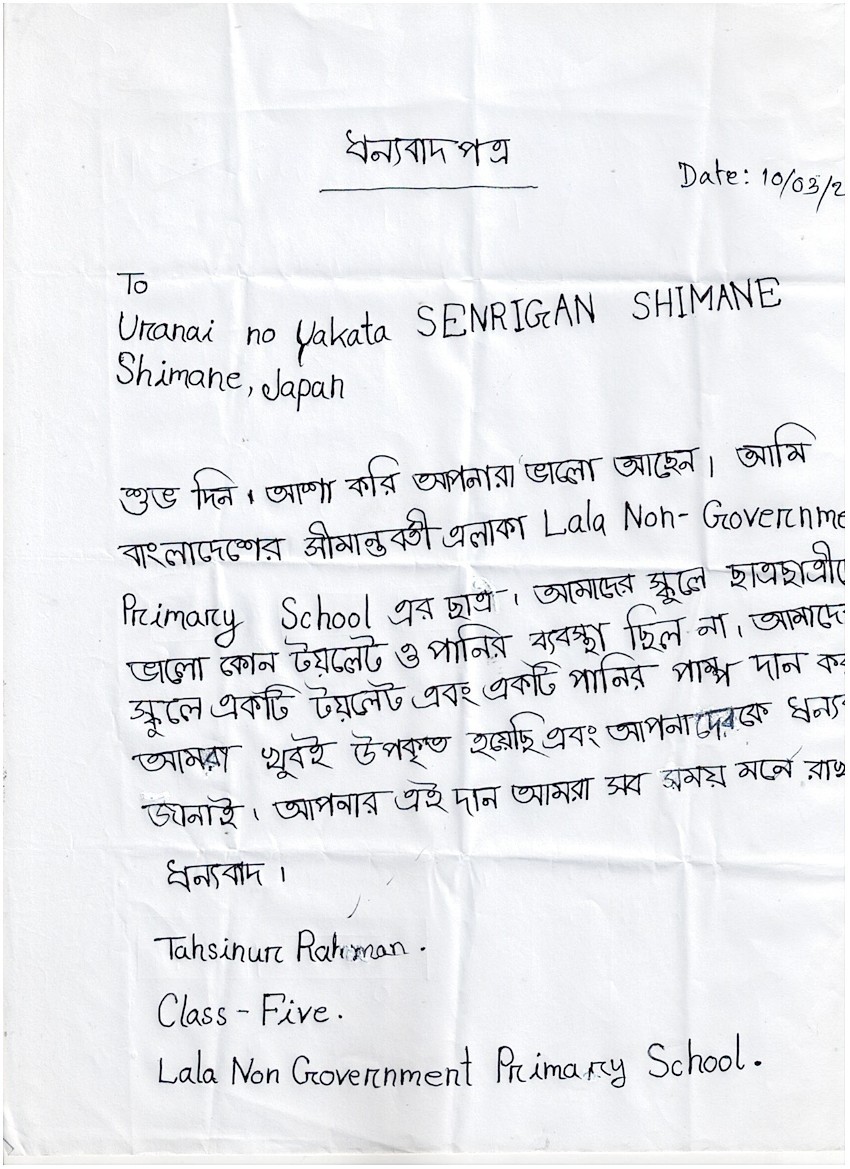 ধন্যবাদ পত্র
Date: 10/03/2
To
Uranai no Yakata SENRIGAN SHIMANE
Shimane, Japan
শুভ দিন। আশা করি আপনারা ভালো আছেন। আমি
বাংলাদেশের সীমান্তবর্তী এলাকা Lala Non-Governme
Primary School এর ছাত্র। আমাদের স্কুলে ছাত্রছাত্রীদে
ভালো কোন টয়লেট ও পানির ব্যবস্থা ছিল না। আমাদে
স্কুলে একটি টয়লেট এবং একটি পানির পাম্প দান কর
আমরা খুবই উপকৃত হয়েছি এবং আপনাদেরকে ধন্যব
জানাই। আপনার এই দান আমরা সব সময় মনে রাখ
ধন্যবাদ।
Tahsinur Rahman.
Class - Five.
Lala Non Government Primary School.